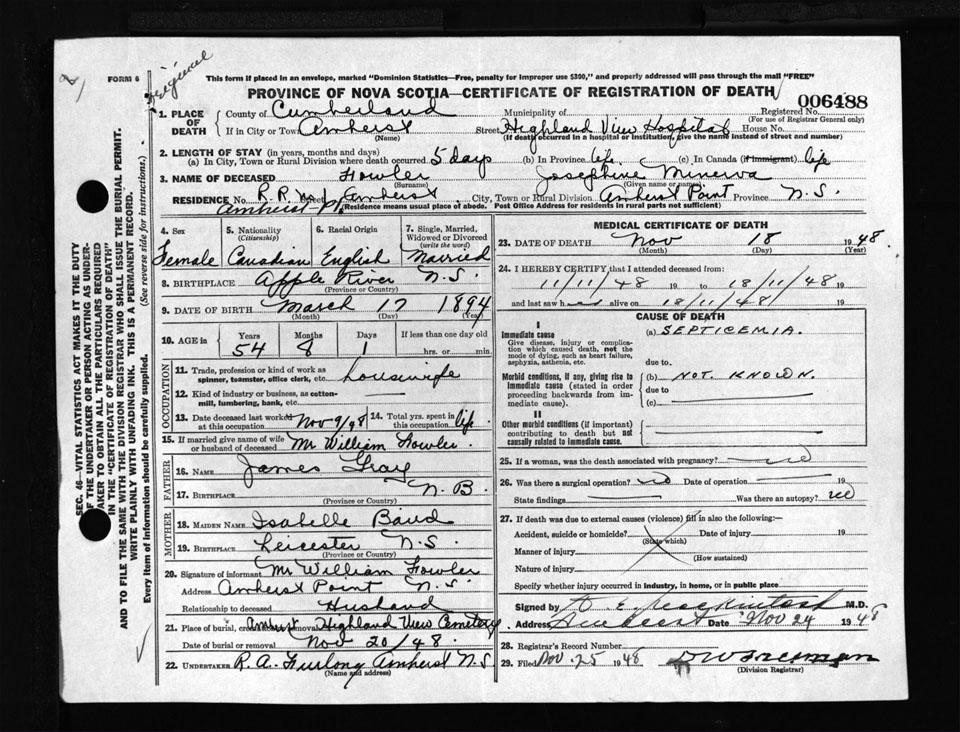 Original
FORM 6
This form if placed in an envelope, marked "Dominion Statistics—Free, penalty for improper use $300," and properly addressed will pass through the mail "FREE"
PROVINCE OF NOVA SCOTIA—CERTIFICATE OF REGISTRATION OF DEATH
006488
1. PLACE OF DEATH
County of Cumberland Municipality of Registered No.
(For use of Registrar General only)
If in City or Town Amherst Street Highland View Hospital House No.
(Name) (If death occurred in a hospital or institution, give the name instead of street and number)
2. LENGTH OF STAY (in years, months and days)
(a) In City, Town or Rural Division where death occurred 5 days (b) In Province life (c) In Canada (if immigrant) life
3. NAME OF DECEASED Fowler Josephine Minerva
(Surname) (Given name or names)
RESIDENCE No. R.R. No 1 Street Amherst City, Town or Rural Division Amherst Point Province N.S.
Amherst Pt
(Residence means usual place of abode. Post Office Address for residents in rural parts not sufficient)
4. Sex 5. Nationality (Citizenship) 6. Racial Origin 7. Single, Married, Widowed or Divorced (write the word)
Female Canadian English Married
8. BIRTHPLACE Apple River N.S.
(Province or Country)
9. DATE OF BIRTH March 17 1894
(Month) (Day) (Year)
10. AGE in Years Months Days If less than one day old
54 8 1 hrs. or min.
OCCUPATION
11. Trade, profession or kind of work as spinner, teamster, office clerk, etc. housewife
12. Kind of industry or business, as cotton-mill, lumbering, bank, etc.
13. Date deceased last worked at this occupation Nov 9/48 14. Total yrs. spent in this occupation life
15. If married give name of wife or husband of deceased Mr William Fowler
FATHER
16. NAME James Gray
17. BIRTHPLACE N.B.
(Province or Country)
MOTHER
18. MAIDEN NAME Isabelle Baird
19. BIRTHPLACE Leicester N.S.
(Province or Country)
20. Signature of informant Mr William Fowler
Address Amherst Point N.S.
Relationship to deceased Husband
21. Place of burial, cremation or removal Amherst Highland View Cemetery
Date of burial or removal Nov 20/48
22. UNDERTAKER R.A. Furlong Amherst N.S.
(Name and address)
MEDICAL CERTIFICATE OF DEATH
23. DATE OF DEATH Nov 18 1948
(Month) (Day) (Year)
24. I HEREBY CERTIFY that I attended deceased from:
11/11/48 19 to 18/11/48 19
and last saw her alive on 18/11/48 19
CAUSE OF DEATH
I
Immediate cause
Give disease, injury or complication which caused death, not the mode of dying, such as heart failure, asphyxia, asthenia, etc.
(a) SEPTICEMIA.
due to
Morbid conditions, if any, giving rise to immediate cause (stated in order proceeding backwards from immediate cause).
(b) NOT KNOWN.
due to
(c)
II
Other morbid conditions (if important) contributing to death but not causally related to immediate cause.
25. If a woman, was the death associated with pregnancy? no
26. Was there a surgical operation? no Date of operation 19
State findings Was there an autopsy? no
27. If death was due to external causes (violence) fill in also the following:—
Accident, suicide or homicide? Date of injury 19
(State which)
Manner of injury
(How sustained)
Nature of injury
Specify whether injury occurred in industry, in home, or in public place
Signed by D E Mackintosh M.D.
Address Amherst Date Nov 24 1948
28. Registrar's Record Number
29. Filed Nov. 25 1948
(Division Registrar)
SEC. 46—VITAL STATISTICS ACT MAKES IT THE DUTY
OF THE UNDERTAKER OR PERSON ACTING AS UNDER-
TAKER TO OBTAIN ALL THE PARTICULARS REQUIRED
IN THE "CERTIFICATE OF REGISTRATION OF DEATH"
AND TO FILE THE SAME WITH THE DIVISION REGISTRAR WHO SHALL ISSUE THE BURIAL PERMIT.
WRITE PLAINLY WITH UNFADING INK. THIS IS A PERMANENT RECORD.
Every item of information should be carefully supplied. (See reverse side for instructions.)